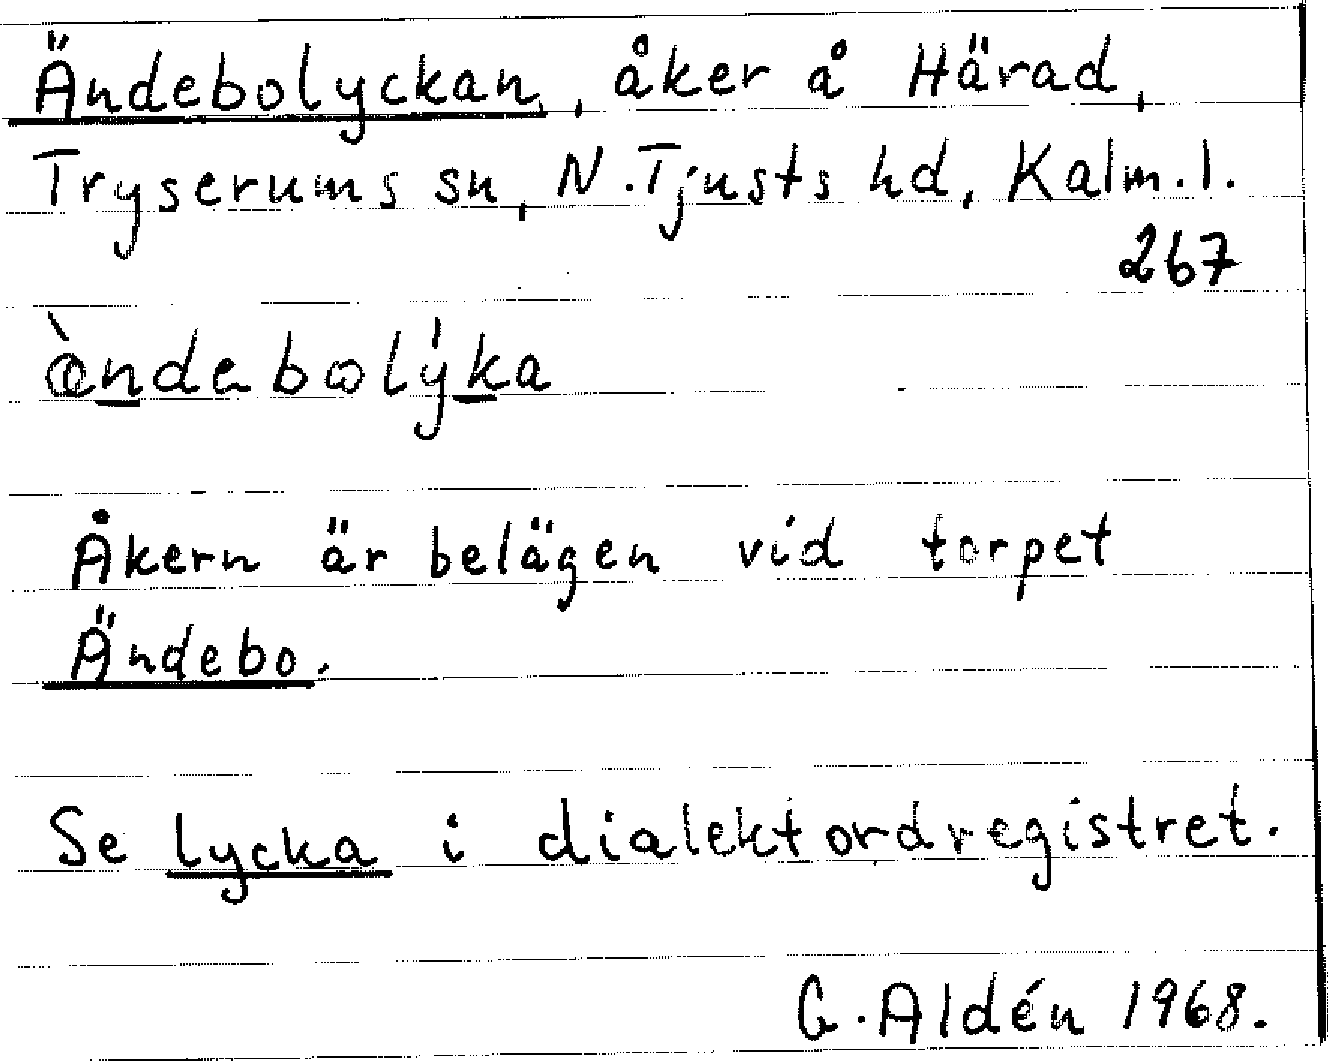 Ändebolyckan, åker å Härad,
Tryserums sn, N. Tjusts hd, Kalm. l.
267
Åkern är belägen vid torpet
Ändebo.
Se lycka i dialektordregistret.
G. Aldén 1968.